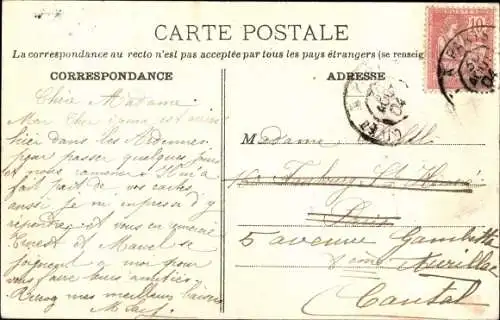 CARTE POSTALE
La correspondance au recto n'est pas acceptée par tous les pays étrangers (se renseig
CORRESPONDANCE
ADRESSE
10
PARIS
Chère Madame
Mon cher est
hier dans les Ardennes
pour passer quelques jours
et nous ramener Il m'a
fait part de vos cartes
aussi je m'empresse d'y
répondre et vous en
Ernest et Marcel se
joignent à moi pour
vous faire leurs amitiés
mes meilleurs baisers
Madame
Faubourg St Honoré
Paris
5 avenue Gambetta
Aurillac
Cantal